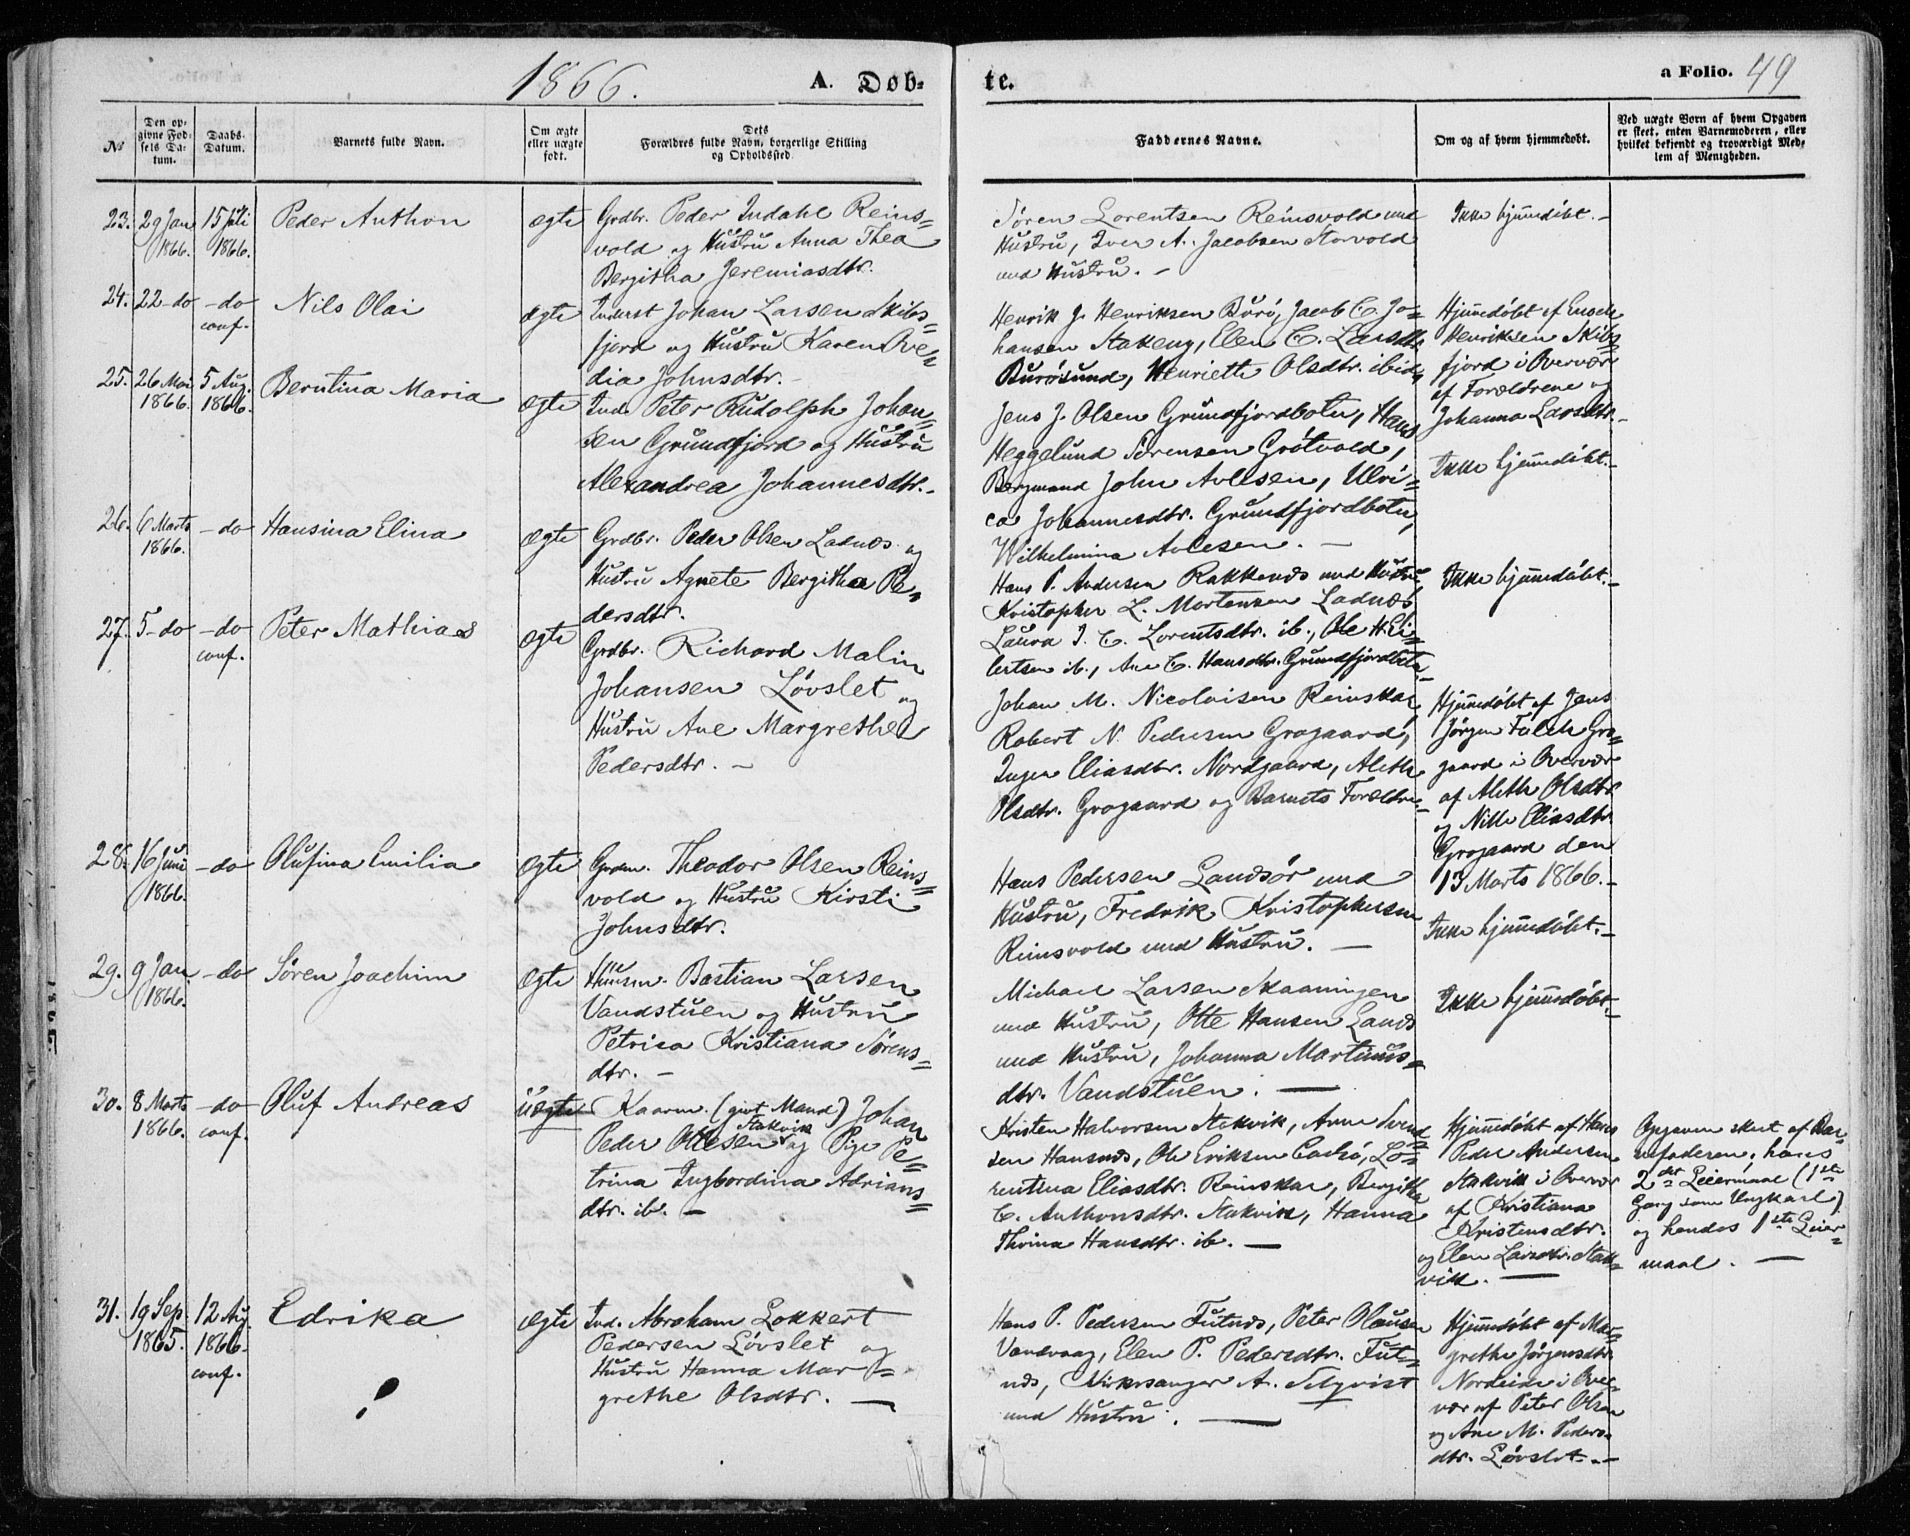 1866.
A. Døb-
te.
a Folio. 49
№
Den op-
givne Fød-
sels Da-
tum.
Daabs-
Datum.
Barnets fulde Navn.
Om ægte
eller uægte
født.
Dets
Forældres fulde Navn, borgerlige Stilling
og Opholdssted.
Faddernes Navne.
Om og af hvem hjemmedøbt.
Ved uægte Børn af hvem Opgaven
er skeet, enten Barnemoderen, eller
hvilket bekjendt og troværdigt Med-
lem af Menigheden.
23. 29 Jan 1866. 15 Juli 1866. Peder Anthon ægte
Grdbr. Peder Indahl Reins=
vold og Hustru Anna Thea
Bergitha Jeremiasdtr.
Søren Lorentsen Reinsvold med
Hustru, Iver A. Jacobsen Storvold
med Hustru. -
Ikke hjemmedøbt. -
24. 22 - do - do conf. Nils Olai ægte
Inderst Johan Larsen Skibs=
fjord og Hustru Karen Ove=
dia Johnsdtr. -
Henrik J. Henriksen Burø, Jacob C. Jo=
hansen Stakeng, Elen C. Larsdtr
Burøsund, Henriette Olsdtr. ibid.
Hjemmedøbt af Enoch
Henriksen Skibs=
fjord i Overvær
af Forældrene og
Johanna Larsdtr. -
25. 26 Mai 1866. 5 Aug. 1866. Berntina Maria ægte
Ind. Peter Rudolph Johan=
sen Grundfjord og Hustru
Alexandrea Johannesdtr. -
Jens J. Olsen Grundfjordbotn, Hans
Heggelund Sørensen Grøtvold,
Bergmand John Avlesen, Ulri=
ca Johannesdtr. Grundfjordbotn,
Wilhelmina Avlesen. -
Ikke hjemmedøbt. -
26. 6 Marts 1866. - do Hansina Elina ægte
Grdbr. Peder Olsen Ladnæs og
Hustru Agnete Bergitha Pe=
dersdtr.
Hans P. Andersen Rakkenæs med Hustru
Kristopher L. Mortensen Ladnæs,
Laura J. C. Lorentsdtr. ib., Ole H. Ei=
lertsen ib., Ane C. Hansdtr. Grundfjordbotn. -
Ikke hjemmedøbt. -
27. 5 - do - do conf. Peter Mathias ægte
Grdbr. Richard Malin
Johansen Løvslet og
Hustru Ane Margrethe
Pedersdtr. -
Johan M. Nicolaisen Reinskar
Robert N. Pedersen Grogaard,
Inger Eliasdtr. Nordgaard, Aleth
Olsdtr. Grogaard og Barnets Forældre. -
Hjemmedøbt af Jens
Jørgen Falch Gro=
gaard i Overvær
af Aleth Olsdtr
og Nille Eliasdtr.
Grogaard den
13 Marts 1866. -
28. 16 Juni 1866. - do Olufina Emilia ægte
Theodor Olsen Reins=
vold og Hustru Kirsti
Johnsdtr.
Hans Pedersen Sandsør med
Hustru, Fredrik Kristophersen
Reinsvold med Hustru. -
Ikke hjemmedøbt. -
29. 9 Jan 1866. - do Søren Joachim ægte
Huusm. Bastian Larsen
Vandstuen og Hustru
Petrica Kristiana Sørens=
dtr. -
Michael Larsen Skaaningen
med Hustru, Otte Hansen Sands
med Hustru, Johanna Martinus=
dtr. Vandstuen. -
Ikke hjemmedøbt. -
30. 8 Marts 1866. - do conf. Oluf Andreas uægte
Kaarm. (givt Mand) Johan
Peder Ottesen Stakvik og Pige Pe=
trina Ingbordina Adrians=
dtr. ib. -
Kristen Halvorsen Stakvik, Anne Svend=
sen Hansnæs, Ole Eriksen Carlsø, Lo=
rentina Eliasdtr. Reinskar, Bergitha
C. Anthonsdtr. Stakvik, Hanna
Thrina Hansdtr. ib. -
Hjemmedøbt af Hans
Peder Andersen
Stakvik i Overvær
af Kristiana
Kristensdtr.
og Elen Larsdtr. Stak=
vik. -
Opgaven skeet af Bar=
nefaderen, hans
2det Leiermaal (1ste
Gang som Ungkarl)
og hendes 1ste Leier=
maal. -
31. 19 Sep. 1865. 12 Aug. 1866 conf. Edrika ægte
Ind. Abraham Lokkert
Pedersen Løvslet og
Hustru Hanna Mar=
grethe Olsdtr. -
Hans P. Pedersen Futnæs, Peter Olausen
Vandvaag, Elen P. Pedersdtr. Fut=
næs, Kirkesanger A. Selqvist
med Hustru. -
Hjemmedøbt af Mar=
grethe Jørgensdtr.
Nordeide i Over=
vær af Peter Olsen
og Ane M. Peders=
dtr. Løvslet. -